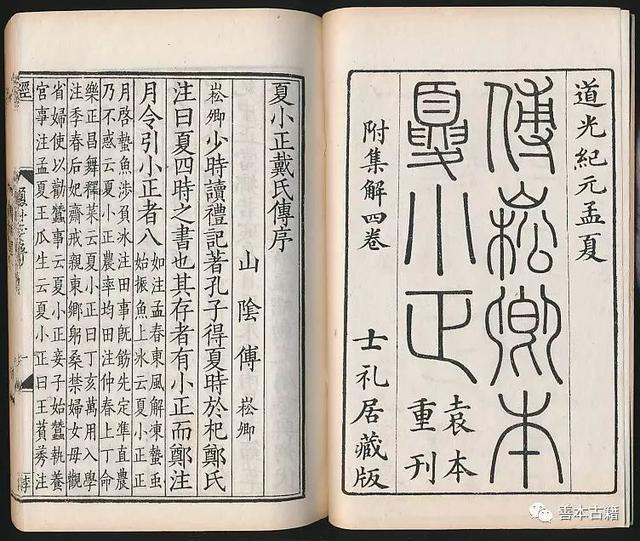 道光紀元孟夏
傅崧卿本
夏小正
袁本
重刊
附集解四卷
士礼居藏版
夏小正戴氏傳序
山陰傅 崧卿
崧卿少時讀禮記著孔子得夏時於杞鄭氏
注曰夏四時之書也其存者有小正而鄭注
月令引小正者八
如注孟春東風解凍蟄虫
始振魚上氷云夏小正正
月啓蟄魚涉負冰注田事既飭先定準直農
乃不惑云夏小正農率均田注仲春上丁命
樂正昌舞釋菜云夏小正曰丁亥萬用入學
注季春后妃齋戒親東鄉躬桑禁婦女毋觀
省婦使以勸蠶事云夏小正妾子始蠶執養
宮事注孟夏王瓜生云夏小正曰王萯莠注
善本古籍